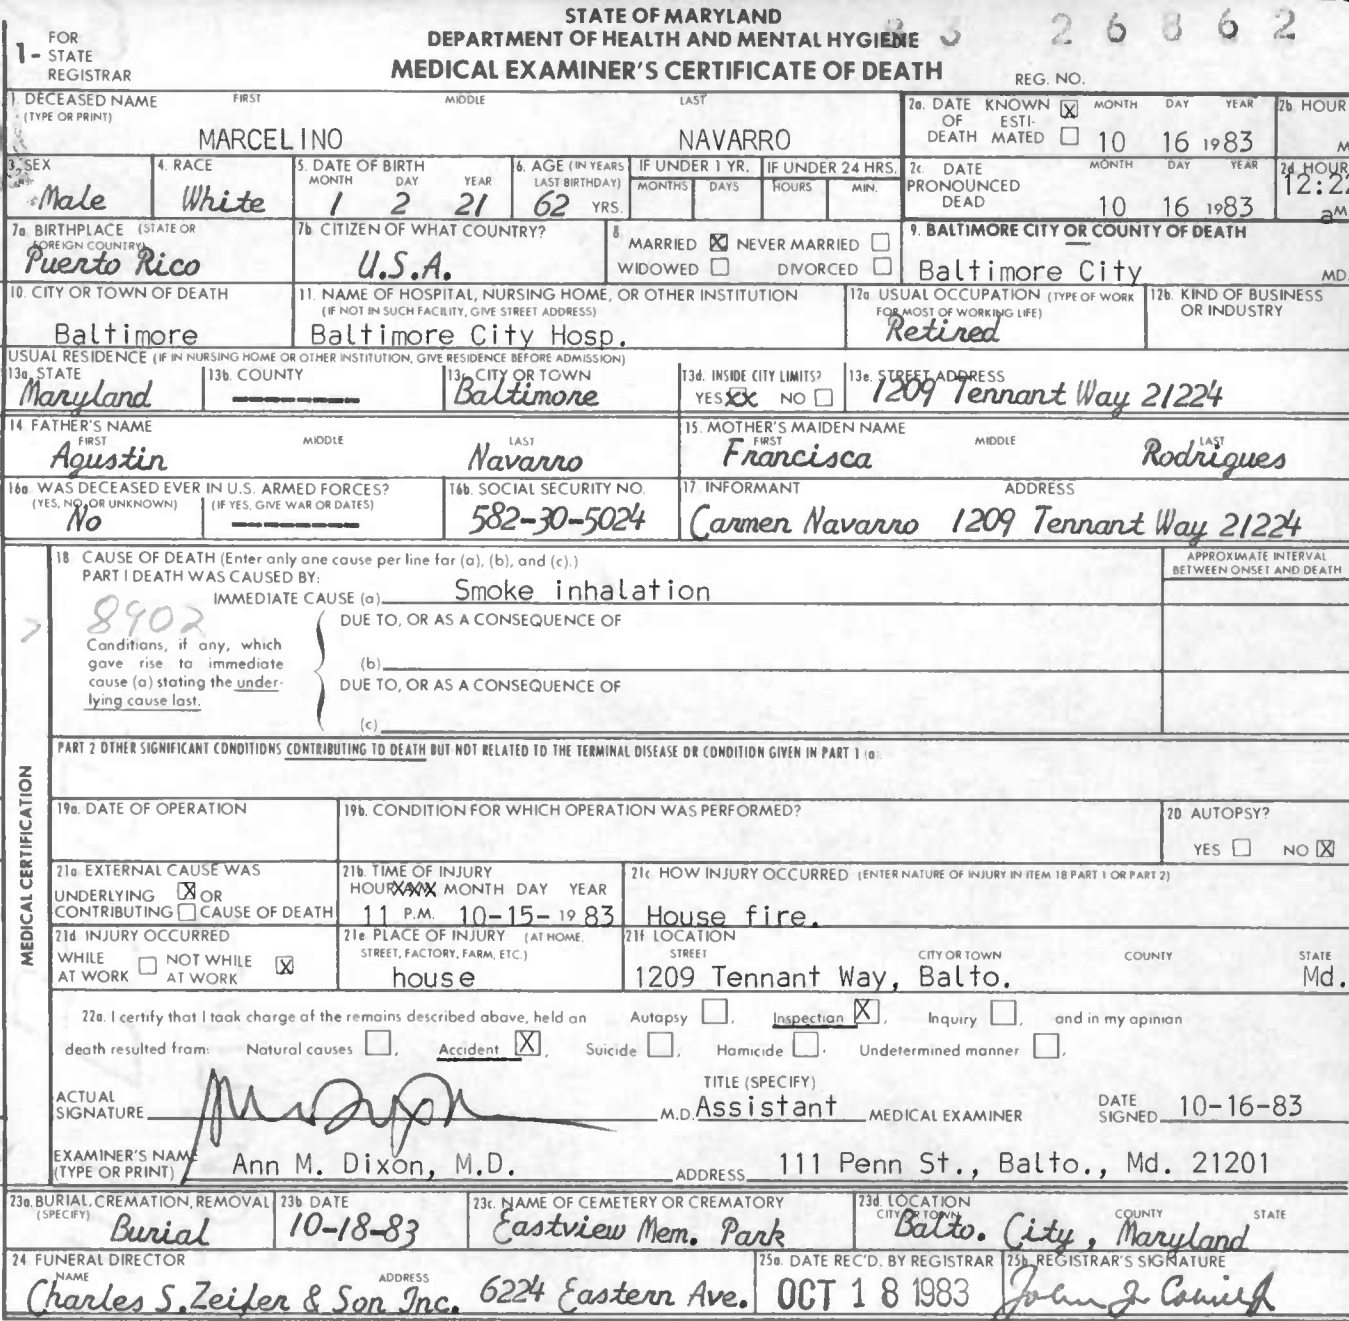 STATE OF MARYLAND
DEPARTMENT OF HEALTH AND MENTAL HYGIENE
MEDICAL EXAMINER'S CERTIFICATE OF DEATH
1- FOR STATE REGISTRAR
3 26862
REG. NO.
1. DECEASED NAME (TYPE OR PRINT) FIRST MIDDLE LAST
MARCELINO NAVARRO
2a. DATE OF DEATH KNOWN X ESTIMATED MONTH DAY YEAR
10 16 1983
2b HOUR M
3. SEX
Male
4. RACE
White
5. DATE OF BIRTH MONTH DAY YEAR
1 2 21
6. AGE (IN YEARS LAST BIRTHDAY)
62 YRS.
IF UNDER 1 YR. MONTHS DAYS
IF UNDER 24 HRS. HOURS MIN.
2c. DATE PRONOUNCED DEAD MONTH DAY YEAR
10 16 1983
2d HOUR
12:22
aM
7a. BIRTHPLACE (STATE OR FOREIGN COUNTRY)
Puerto Rico
7b CITIZEN OF WHAT COUNTRY?
U.S.A.
8. MARRIED X NEVER MARRIED
WIDOWED DIVORCED
9. BALTIMORE CITY OR COUNTY OF DEATH
Baltimore City MD.
10. CITY OR TOWN OF DEATH
Baltimore
11. NAME OF HOSPITAL, NURSING HOME, OR OTHER INSTITUTION
(IF NOT IN SUCH FACILITY, GIVE STREET ADDRESS)
Baltimore City Hosp.
12a USUAL OCCUPATION (TYPE OF WORK FOR MOST OF WORKING LIFE)
Retired
12b. KIND OF BUSINESS OR INDUSTRY
USUAL RESIDENCE (IF IN NURSING HOME OR OTHER INSTITUTION, GIVE RESIDENCE BEFORE ADMISSION)
13a. STATE
Maryland
13b. COUNTY
13c. CITY OR TOWN
Baltimore
13d. INSIDE CITY LIMITS?
YES XX NO
13e. STREET ADDRESS
1209 Tennant Way 21224
14 FATHER'S NAME FIRST MIDDLE LAST
Agustin Navarro
15. MOTHER'S MAIDEN NAME FIRST MIDDLE LAST
Francisca Rodrigues
16a. WAS DECEASED EVER IN U.S. ARMED FORCES?
(YES, NO, OR UNKNOWN) (IF YES, GIVE WAR OR DATES)
No
16b. SOCIAL SECURITY NO.
582-30-5024
17 INFORMANT ADDRESS
Carmen Navarro 1209 Tennant Way 21224
MEDICAL CERTIFICATION
18 CAUSE OF DEATH (Enter only one cause per line for (a), (b), and (c).)
APPROXIMATE INTERVAL BETWEEN ONSET AND DEATH
PART I DEATH WAS CAUSED BY:
IMMEDIATE CAUSE (a) Smoke inhalation
8902
DUE TO, OR AS A CONSEQUENCE OF
Conditions, if any, which gave rise to immediate cause (a) stating the underlying cause last.
(b)
DUE TO, OR AS A CONSEQUENCE OF
(c)
PART 2 OTHER SIGNIFICANT CONDITIONS CONTRIBUTING TO DEATH BUT NOT RELATED TO THE TERMINAL DISEASE OR CONDITION GIVEN IN PART 1 (a)
19a. DATE OF OPERATION
19b. CONDITION FOR WHICH OPERATION WAS PERFORMED?
20 AUTOPSY?
YES NO X
21a EXTERNAL CAUSE WAS
UNDERLYING X OR
CONTRIBUTING CAUSE OF DEATH
21b. TIME OF INJURY
HOUR MONTH DAY YEAR
11 P.M. 10-15-1983
21c HOW INJURY OCCURRED (ENTER NATURE OF INJURY IN ITEM 18 PART 1 OR PART 2)
House fire.
21d INJURY OCCURRED
WHILE AT WORK NOT WHILE AT WORK X
21e PLACE OF INJURY (AT HOME, STREET, FACTORY, FARM, ETC.)
house
21f LOCATION
STREET CITY OR TOWN COUNTY STATE
1209 Tennant Way, Balto. Md.
22a. I certify that I took charge of the remains described above, held an Autopsy , Inspection X , Inquiry , and in my opinion
death resulted from: Natural causes , Accident X , Suicide , Homicide . Undetermined manner ,
ACTUAL SIGNATURE M.D.
TITLE (SPECIFY)
Assistant MEDICAL EXAMINER
DATE SIGNED 10-16-83
EXAMINER'S NAME (TYPE OR PRINT) Ann M. Dixon, M.D.
ADDRESS 111 Penn St., Balto., Md. 21201
23a. BURIAL, CREMATION, REMOVAL (SPECIFY)
Burial
23b DATE
10-18-83
23c. NAME OF CEMETERY OR CREMATORY
Eastview Mem. Park
23d. LOCATION CITY OR TOWN COUNTY STATE
Balto. City, Maryland
24 FUNERAL DIRECTOR
NAME ADDRESS
Charles S. Zeiler & Son Inc. 6224 Eastern Ave.
25a. DATE REC'D. BY REGISTRAR
OCT 18 1983
25b. REGISTRAR'S SIGNATURE
John J.